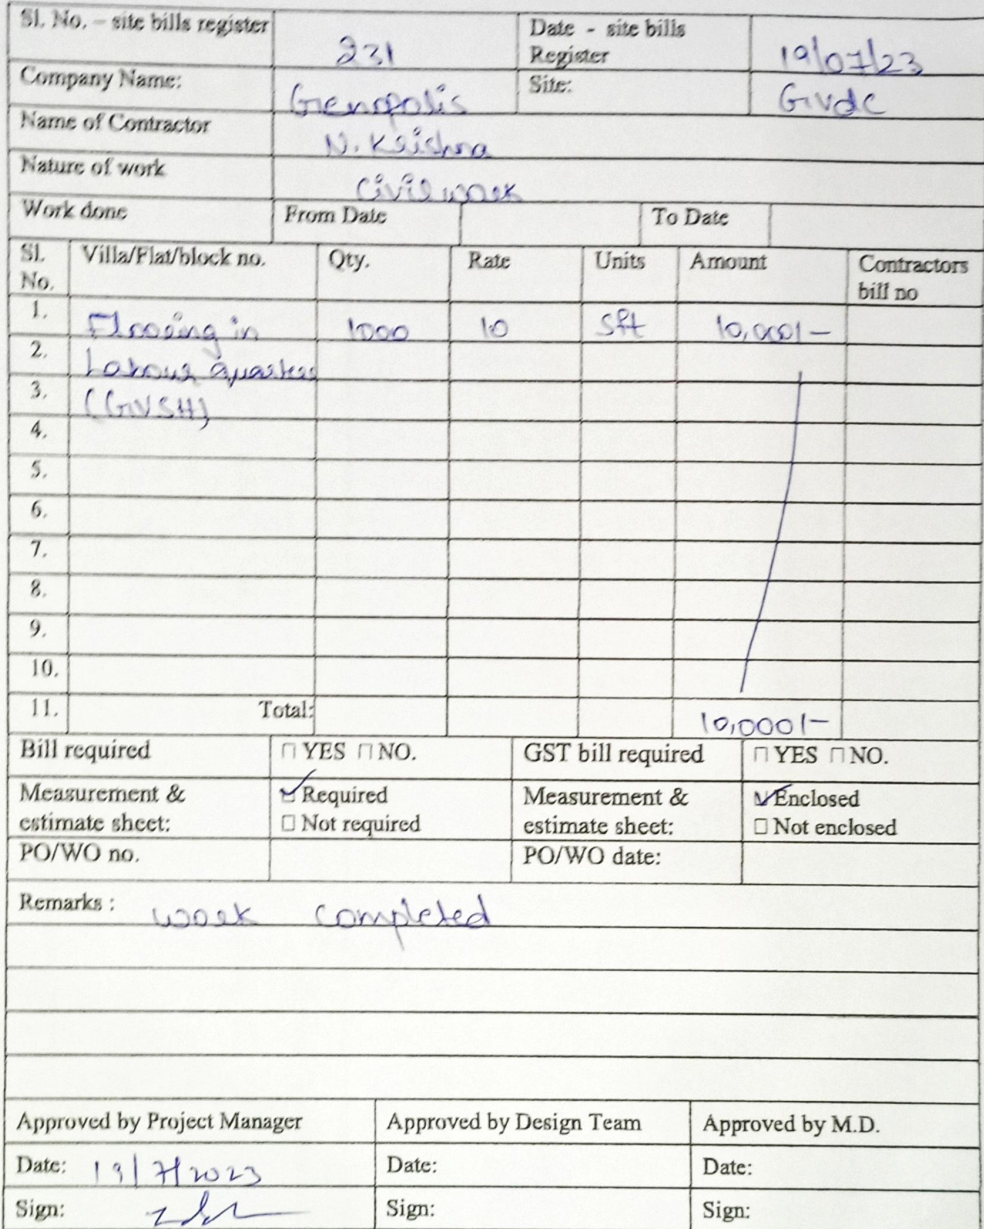 Sl. No. – site bills register 231 Date - site bills Register 19/07/23
Company Name: Genopolis Site: Gvdc
Name of Contractor N. Krishna
Nature of work Civil work
Work done From Date To Date
Sl. No. Villa/Flat/block no. Qty. Rate Units Amount Contractors bill no
1. Flooring in 1000 10 Sft 10,000/-
2. Labour quarters
3. (GVSH)
4.
5.
6.
7.
8.
9.
10.
11. Total: 10,000/-
Bill required □ YES □ NO. GST bill required □ YES □ NO.
Measurement & estimate sheet: ☑ Required □ Not required Measurement & estimate sheet: ☑ Enclosed □ Not enclosed
PO/WO no. PO/WO date:
Remarks : work completed
Approved by Project Manager Approved by Design Team Approved by M.D.
Date: 19/7/2023 Date: Date:
Sign: Sign: Sign: